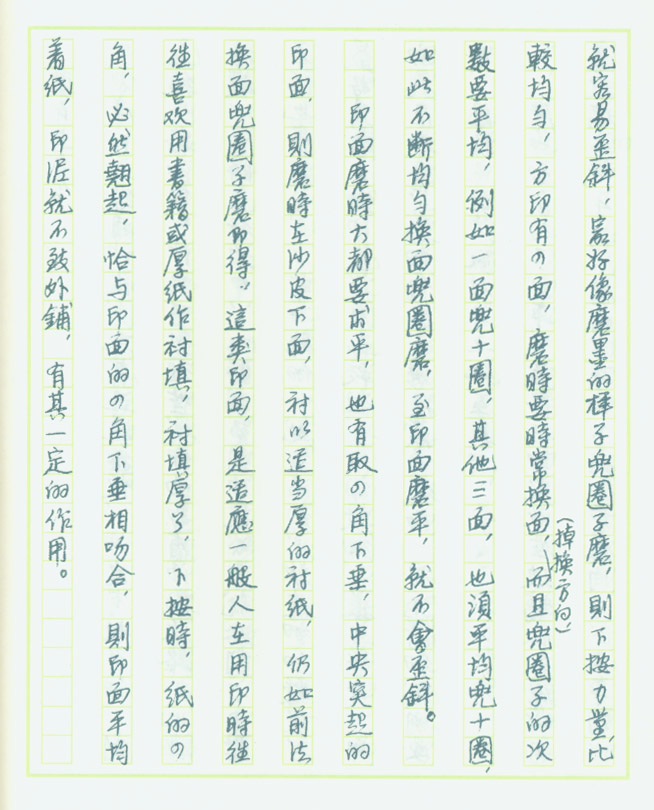 就容易歪斜，最好像磨墨的样子兜圈子磨，則下按力量比
較均匀，方印有の面，磨時要時常換面，而且兜圈子的次
（掉换方向）
數要平均，例如一面兜十圈，其他三面，也須平均兜十圈，
如此不断均匀换面兜圈磨，至印面磨平，就不會歪斜。
印面磨時大都要求平，也有取の角下垂，中央突起的
印面，則磨時在沙皮下面，衬以适当厚的衬纸，仍如前法
换面兜圈子磨即得。這类印面，是适應一般人在用印時往
往喜欢用書籍或厚纸作衬填，衬填厚了，下按時，纸的の
角，必然翹起，恰与印面的の角下垂相吻合，則印面平均
着纸，印泥就不致外鋪，有其一定的作用。